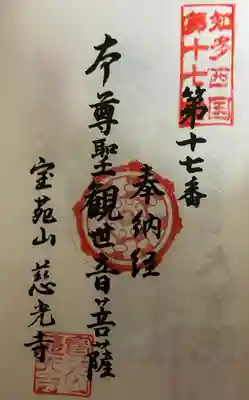 知多西国
第十七
第十七番
奉納経
本尊聖観世音菩薩
宝苑山 慈光寺